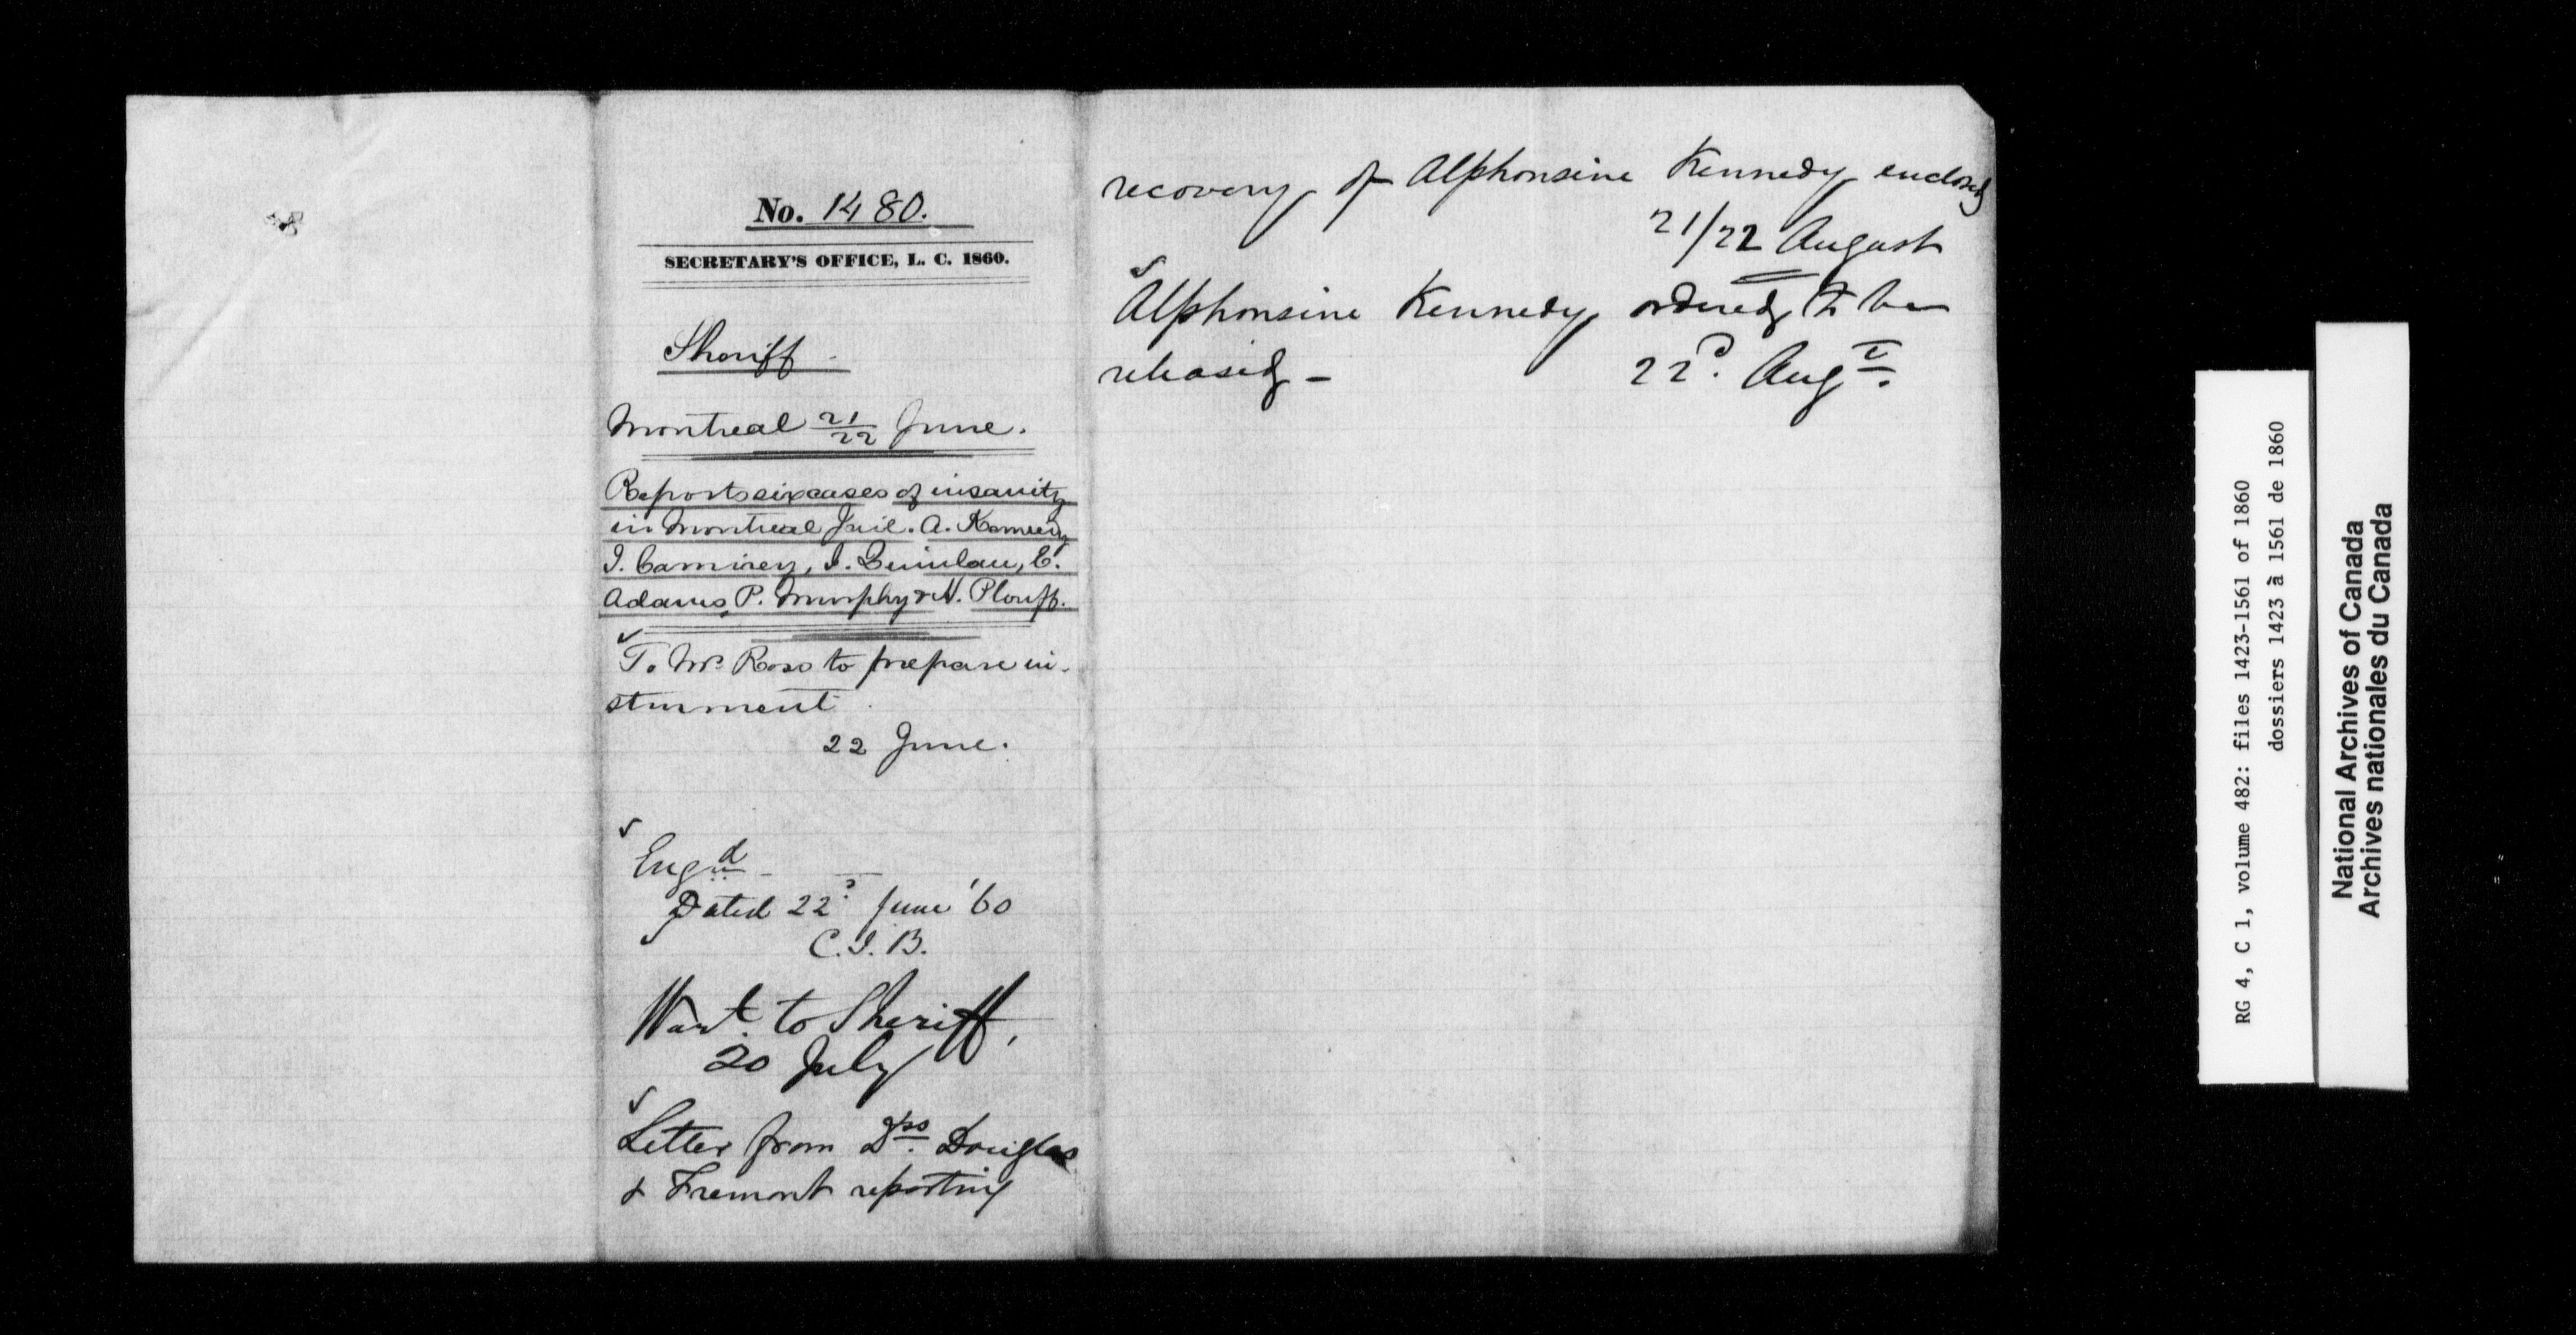 No. 1480.
SECRETARY'S OFFICE, L. C. 1860.
Sheriff
Montreal 21/22 June.
Reports six cases of insanity
in Montreal Jail. A. Kennedy
I. Camirey, I. Quinlan, E.
Adams, P. Murphy & N. Plouff.
To Mr. Ross to prepare in-
strument
22 June.
Engd
Dated 22d June '60
C.J.B.
Wart. to Sheriff,
20 July
Letter from Drs. Douglas
& Fremont reporting
recovery of Alphonsine Kennedy enclosed
21/22 August
Alphonsine Kennedy ordered to be
released - 22d. Augt.
RG 4, C 1, volume 482: files 1423-1561 of 1860
dossiers 1423 à 1561 de 1860
National Archives of Canada
Archives nationales du Canada